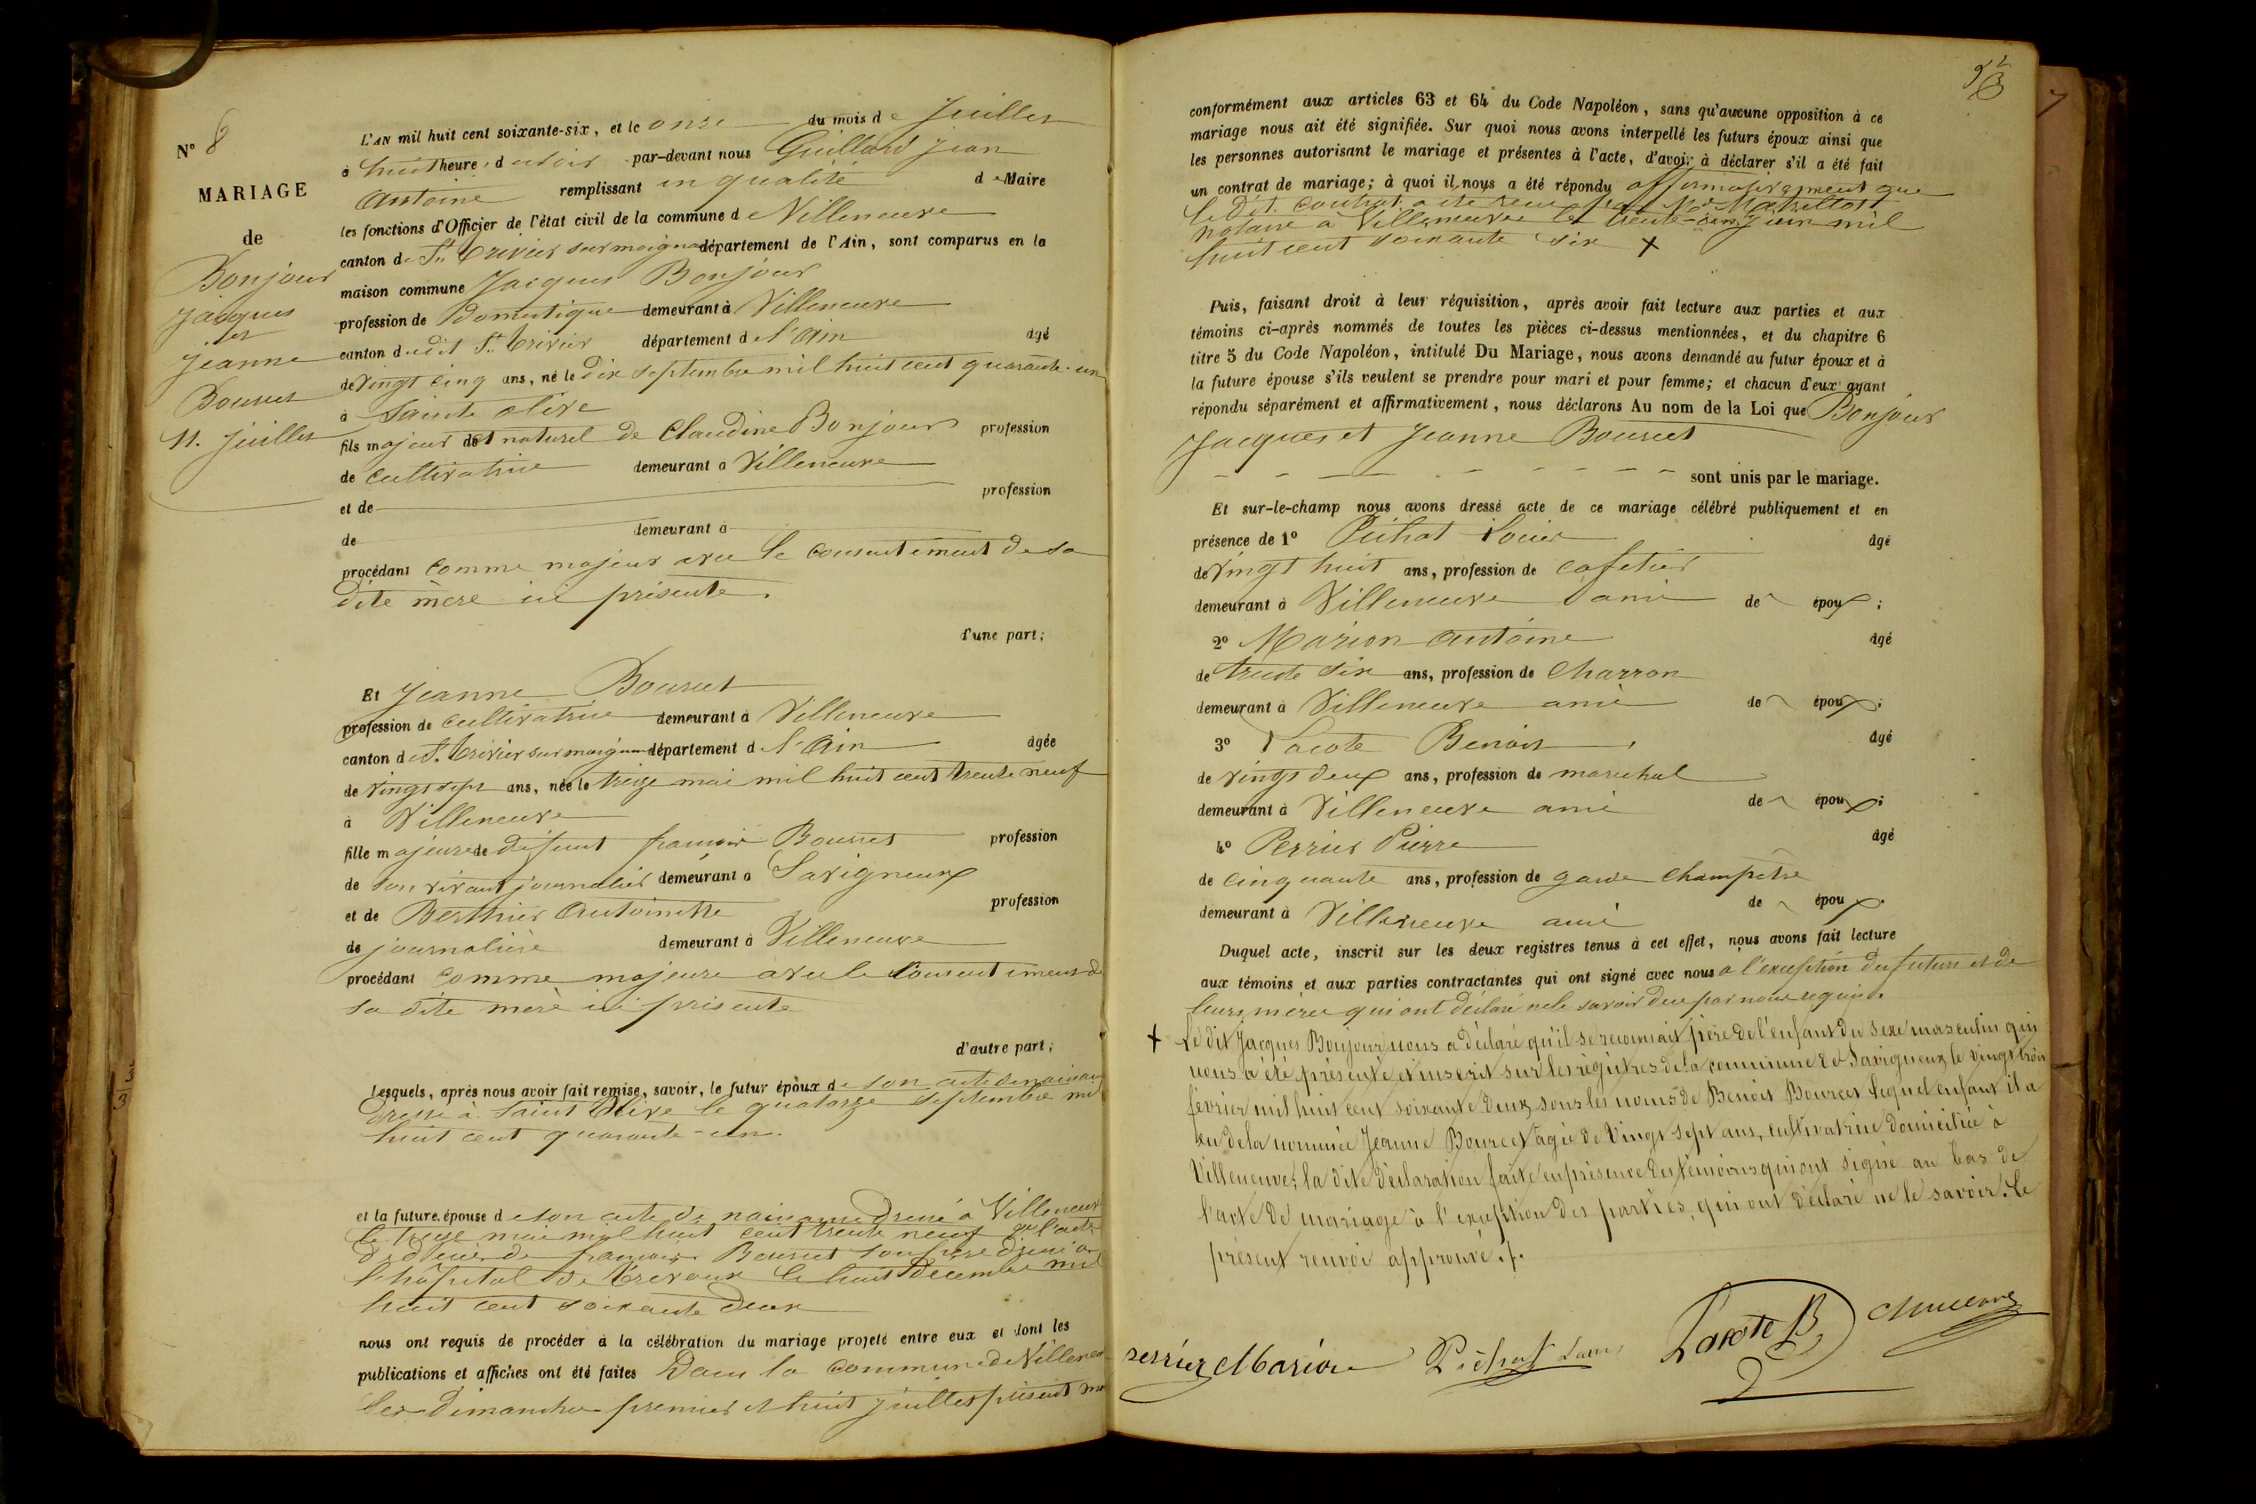 N° 8
MARIAGE
de
Bonjour
Jacques
et
Jeanne
Bourcet
11. Juillet
L'AN mil huit cent soixante-six, et le onze du mois de Juillet
à huit heure du soir par-devant nous Guillard Jean
Antoine remplissant en qualité de Maire
les fonctions d'Officier de l'état civil de la commune de Villeneuve
canton de St Trivier sur moignans département de l'Ain, sont comparus en la
maison commune Jacques Bonjour
profession de Domestique demeurant à Villeneuve
canton dudit St Trivier département de l'Ain âgé
de vingt cinq ans, né le dix septembre mil huit cent quarante-un
à Sainte olive
fils majeur et naturel de Claudine Bonjour profession
de cultivatrice demeurant à Villeneuve
et de profession
de demeurant à
procédant comme majeur avec le consentement de sa
dite mère ici présente.
d'une part;
Et Jeanne Bourcet
profession de cultivatrice demeurant à Villeneuve
canton de St. Trivier sur moignans département de l'Ain âgée
de vingt sept ans, née le treize mai mil huit cent trente neuf
à Villeneuve
fille majeure de défunt francois Bourcet profession
de son vivant journalier demeurant à Savigneux
et de Berthier Antoinette profession
de journalière demeurant à Villeneuve
procédant comme majeure avec le consentement de
sa dite mère ici présente
d'autre part;
Lesquels, après nous avoir fait remise, savoir, le futur époux de son acte de naissance
dressé à Saint Olive le quatorze septembre mil
huit cent quarante-un.
et la future épouse de son acte de naissance dressé à Villeneuve
le treize mai mil huit cent trente neuf l'acte
de décès de francois Bourcet son père dressé à
l'hôpital de Trévoux le huit décembre mil
huit cent soixante deux
nous ont requis de procéder à la célébration du mariage projeté entre eux et dont les
publications et affiches ont été faites Dans la commune de Villeneuve
les dimanches premier et huit juillet présent mois
53
conformément aux articles 63 et 64 du Code Napoléon, sans qu'aucune opposition à ce
mariage nous ait été signifiée. Sur quoi nous avons interpellé les futurs époux ainsi que
les personnes autorisant le mariage et présentes à l'acte, d'avoir à déclarer s'il a été fait
un contrat de mariage; à quoi il nous a été répondu affirmativement que
le dit contrat a été reçu par Me
notaire à Villeneuve le trente juin mil
huit cent soixante six +
Puis, faisant droit à leur réquisition, après avoir fait lecture aux parties et aux
témoins ci-après nommés de toutes les pièces ci-dessus mentionnées, et du chapitre 6
titre 5 du Code Napoléon, intitulé Du Mariage, nous avons demandé au futur époux et à
la future épouse s'ils veulent se prendre pour mari et pour femme; et chacun d'eux ayant
répondu séparément et affirmativement, nous déclarons Au nom de la Loi que Bonjour
Jacques et Jeanne Bourcet
sont unis par le mariage.
Et sur-le-champ nous avons dressé acte de ce mariage célébré publiquement et en
présence de 1° Pichat Louis âgé
de vingt huit ans, profession de cafetier
demeurant à Villeneuve ami des époux;
2° Marion Antoine âgé
de trente six ans, profession de Charron
demeurant à Villeneuve ami des époux;
3° Lacote Benoit âgé
de vingt deux ans, profession de marechal
demeurant à Villeneuve ami des époux;
4° Perrier Pierre âgé
de cinquante ans, profession de garde champêtre
demeurant à Villeneuve ami des époux.
Duquel acte, inscrit sur les deux registres tenus à cet effet, nous avons fait lecture
aux témoins et aux parties contractantes qui ont signé avec nous a l'exception des futurs et de
leurs mères qui ont déclaré ne le savoir de ce par nous requis.
+ Le dit Jacques Bonjour nous a déclaré qu'il se reconnait père de l'enfant du sexe masculin qui
nous a été présenté et inscrit sur les régistres de la commune de Savigneux le vingt trois
février mil huit cent soixante deux sous les noms de Benoit Bourcet lequel enfant il a
eu de la nommée Jeanne Bourcet agée de vingt sept ans, cultivatrice domiciliée à
Villeneuve, la dite déclaration faite en présence des témoins qui ont signé au bas de
l'acte de mariage à l'exception des parties, qui ont déclaré ne le savoir. Le
présent renvoi approuvé ./.
perrier Marion Pichat Louis Lacote B